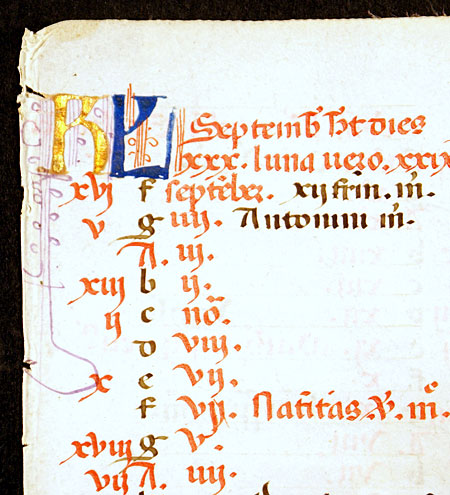 KL Septemb ht dies
xxx. luna uero. xxix
xvj f septẽber. xij frm̃. m̃.
v g iiij. Antonini m̃.
A. iij.
xiij b ij.
ij c nõ.
d viij.
x e vij.
f vj. Natĩtas. V̾. m̊.
xviij g v.
vij A. iiij.